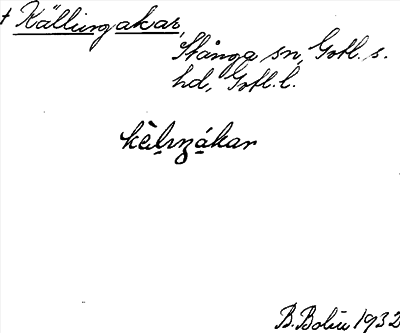 † Källingakar,
Stånga sn, Gotl. s.
hd, Gotl. l.
kèlıŋákar
B. Bolin 1932